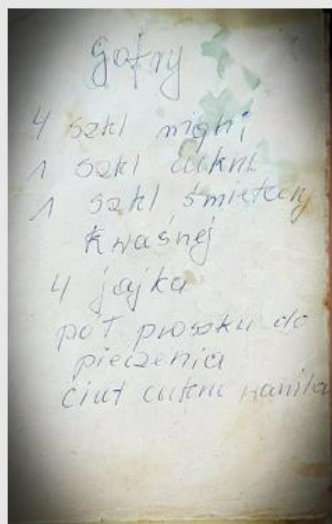 Gofry
4 szkl mąki
1 szkl cukru
1 szkl śmietany
kwaśnej
4 jajka
poł proszku do
pieczenia
ciut cukru wanilio